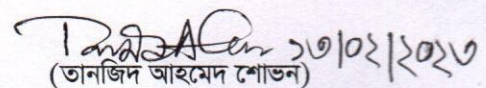 ১৩/০২/২০২৩
(তানজিদ আহমেদ শোভন)